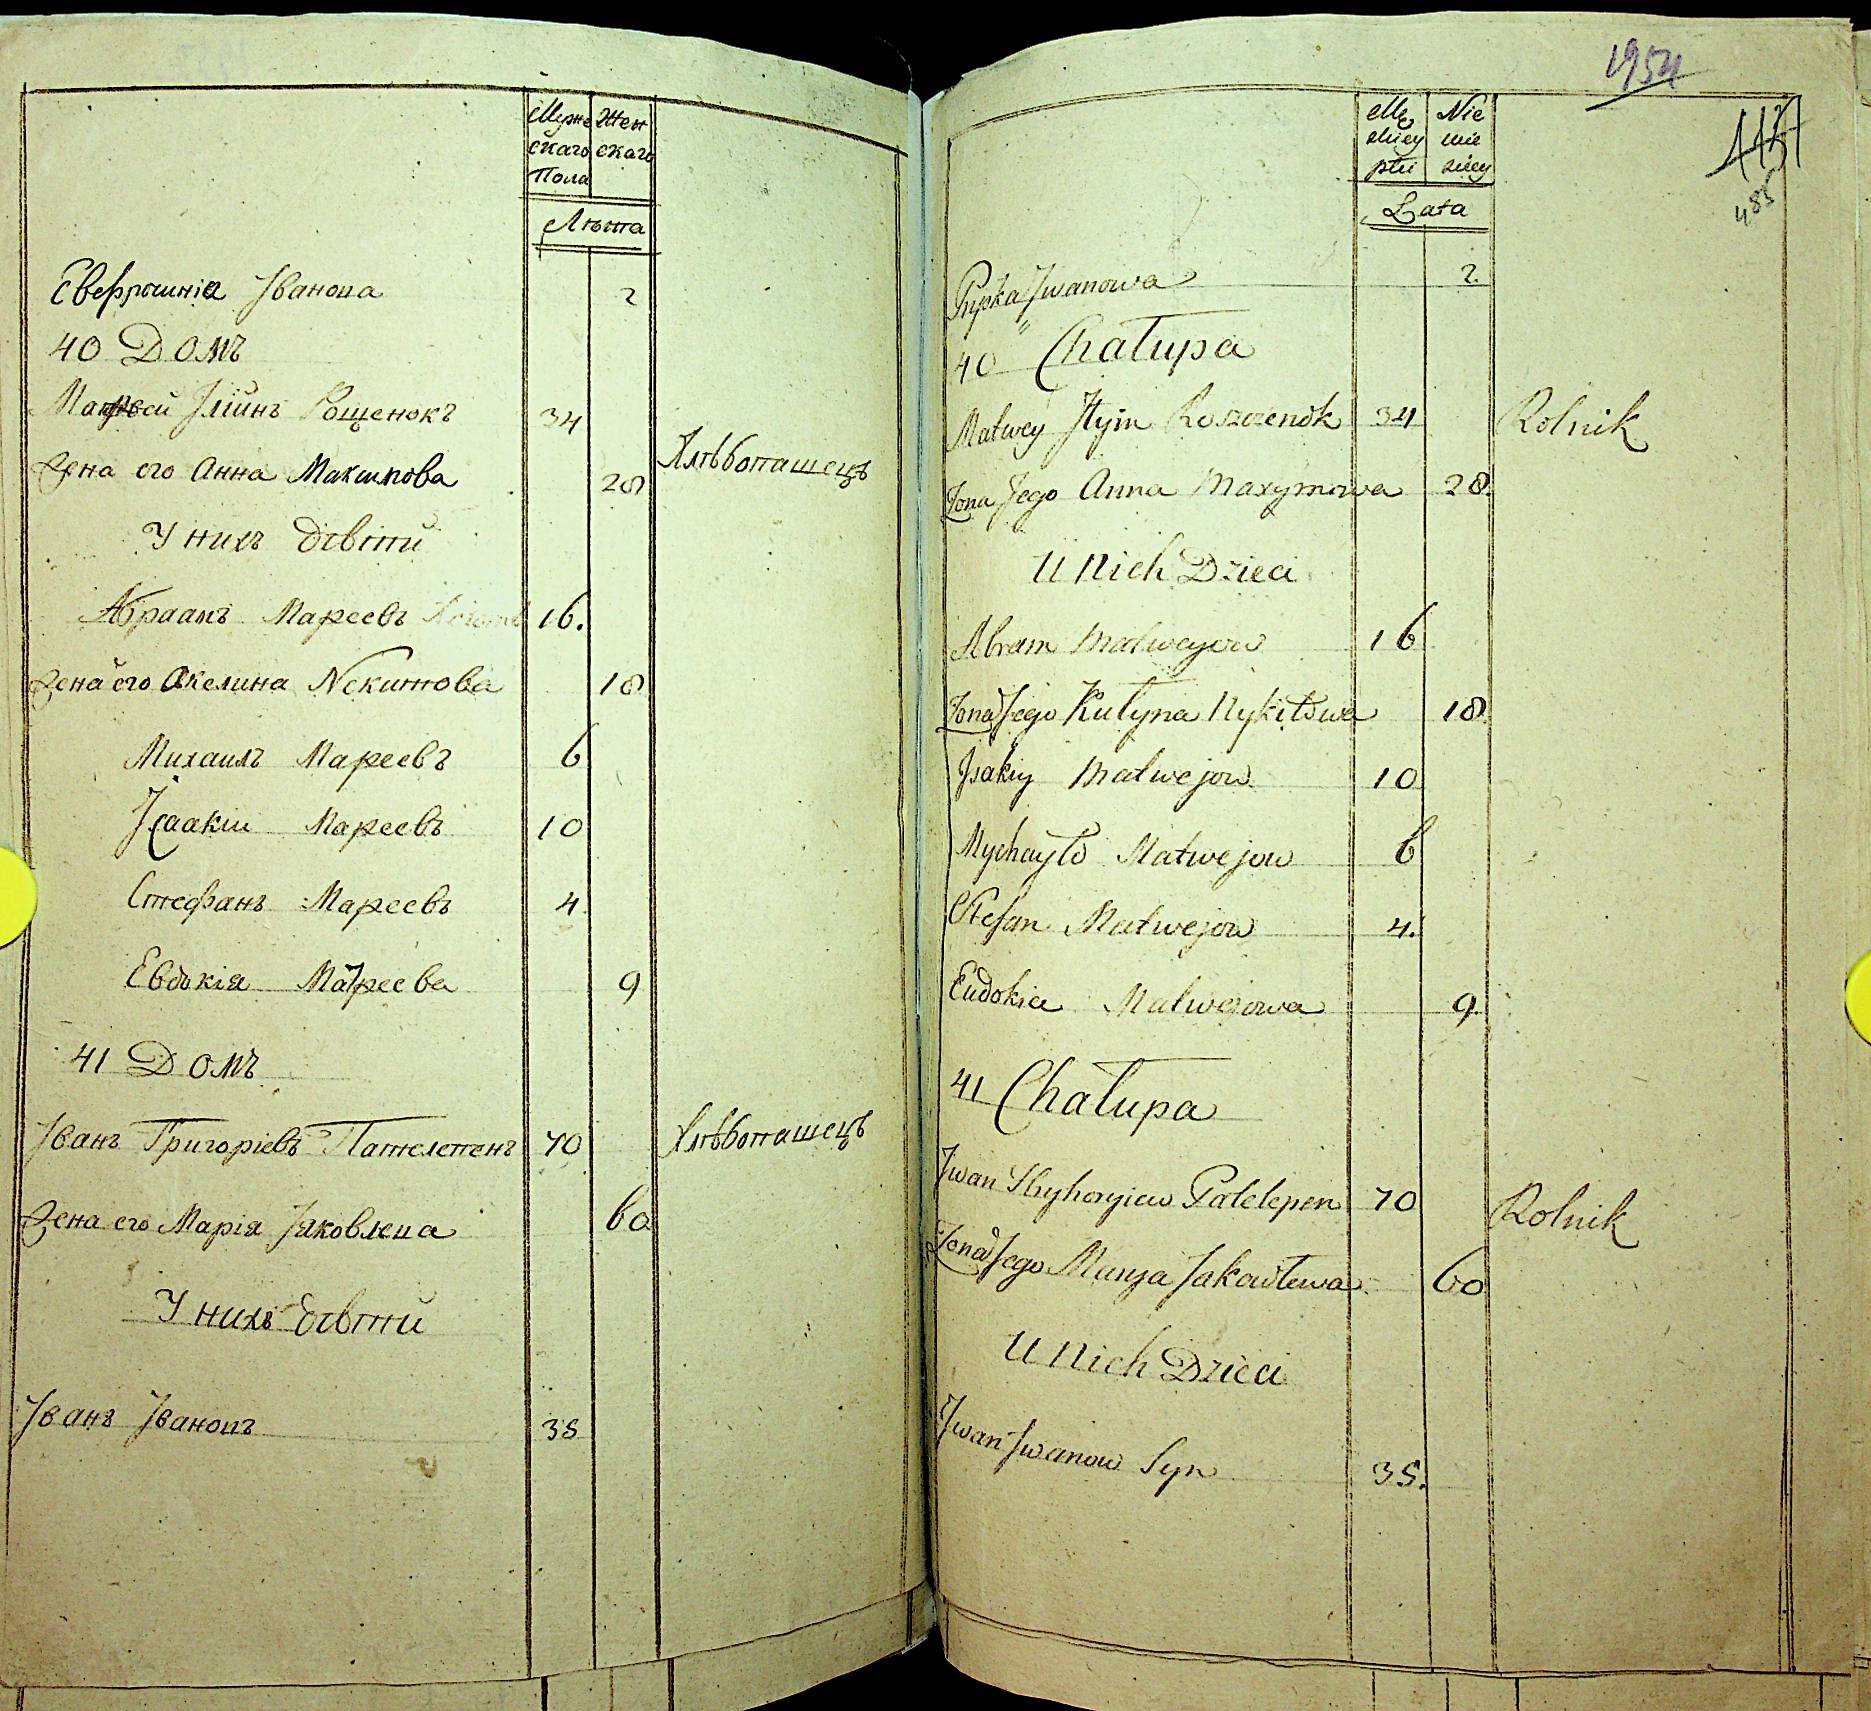 Муже Жен
скаго скаго
Пола
Лѣта
Евфросинія Іванова 2
40 Домъ
Матфей Іліинъ Рощенокъ 34
Хлѣбопашецъ
Жена его Анна Максимова 28
У нихъ дѣтти
Абраамъ Мареевъ 16.
Жена его Акелина Некитова 18
Михаилъ Мареевъ 6
Ісаакіи Мареевъ 10
Стефанъ Мареевъ 4
Евдокія Матфеева 9
41 Домъ
Іванъ Григоріевъ Пателепенъ 70 Хлѣбопашецъ
Жена его Марія Іяковлева 60
У нихъ дѣтти
Іванъ Івановъ 35
1954
485
Mę Nie
zkiey wie
płci
Lata
Pryśka Jwanowa 2.
40 Chałupa
Matwey Jłyin Roszczenok 34 Rolnik
Żona Jego Anna Maxymowa 28.
U Nich Dzieci
Abram Matweyow 16
Żona Jego Kułyna Nykitowa 18
Jsakiy Matwejow 10
Mychayło Matwejow 6
Stefan Matwejow 4.
Eudokia Matwejowa 9.
41 Chałupa
Jwan Hryhoryiew Patelepen 70 Rolnik
Żona Jego Marya Jakowlewa 60
U Nich Dzieci
Jwan Jwanow Syn 35.